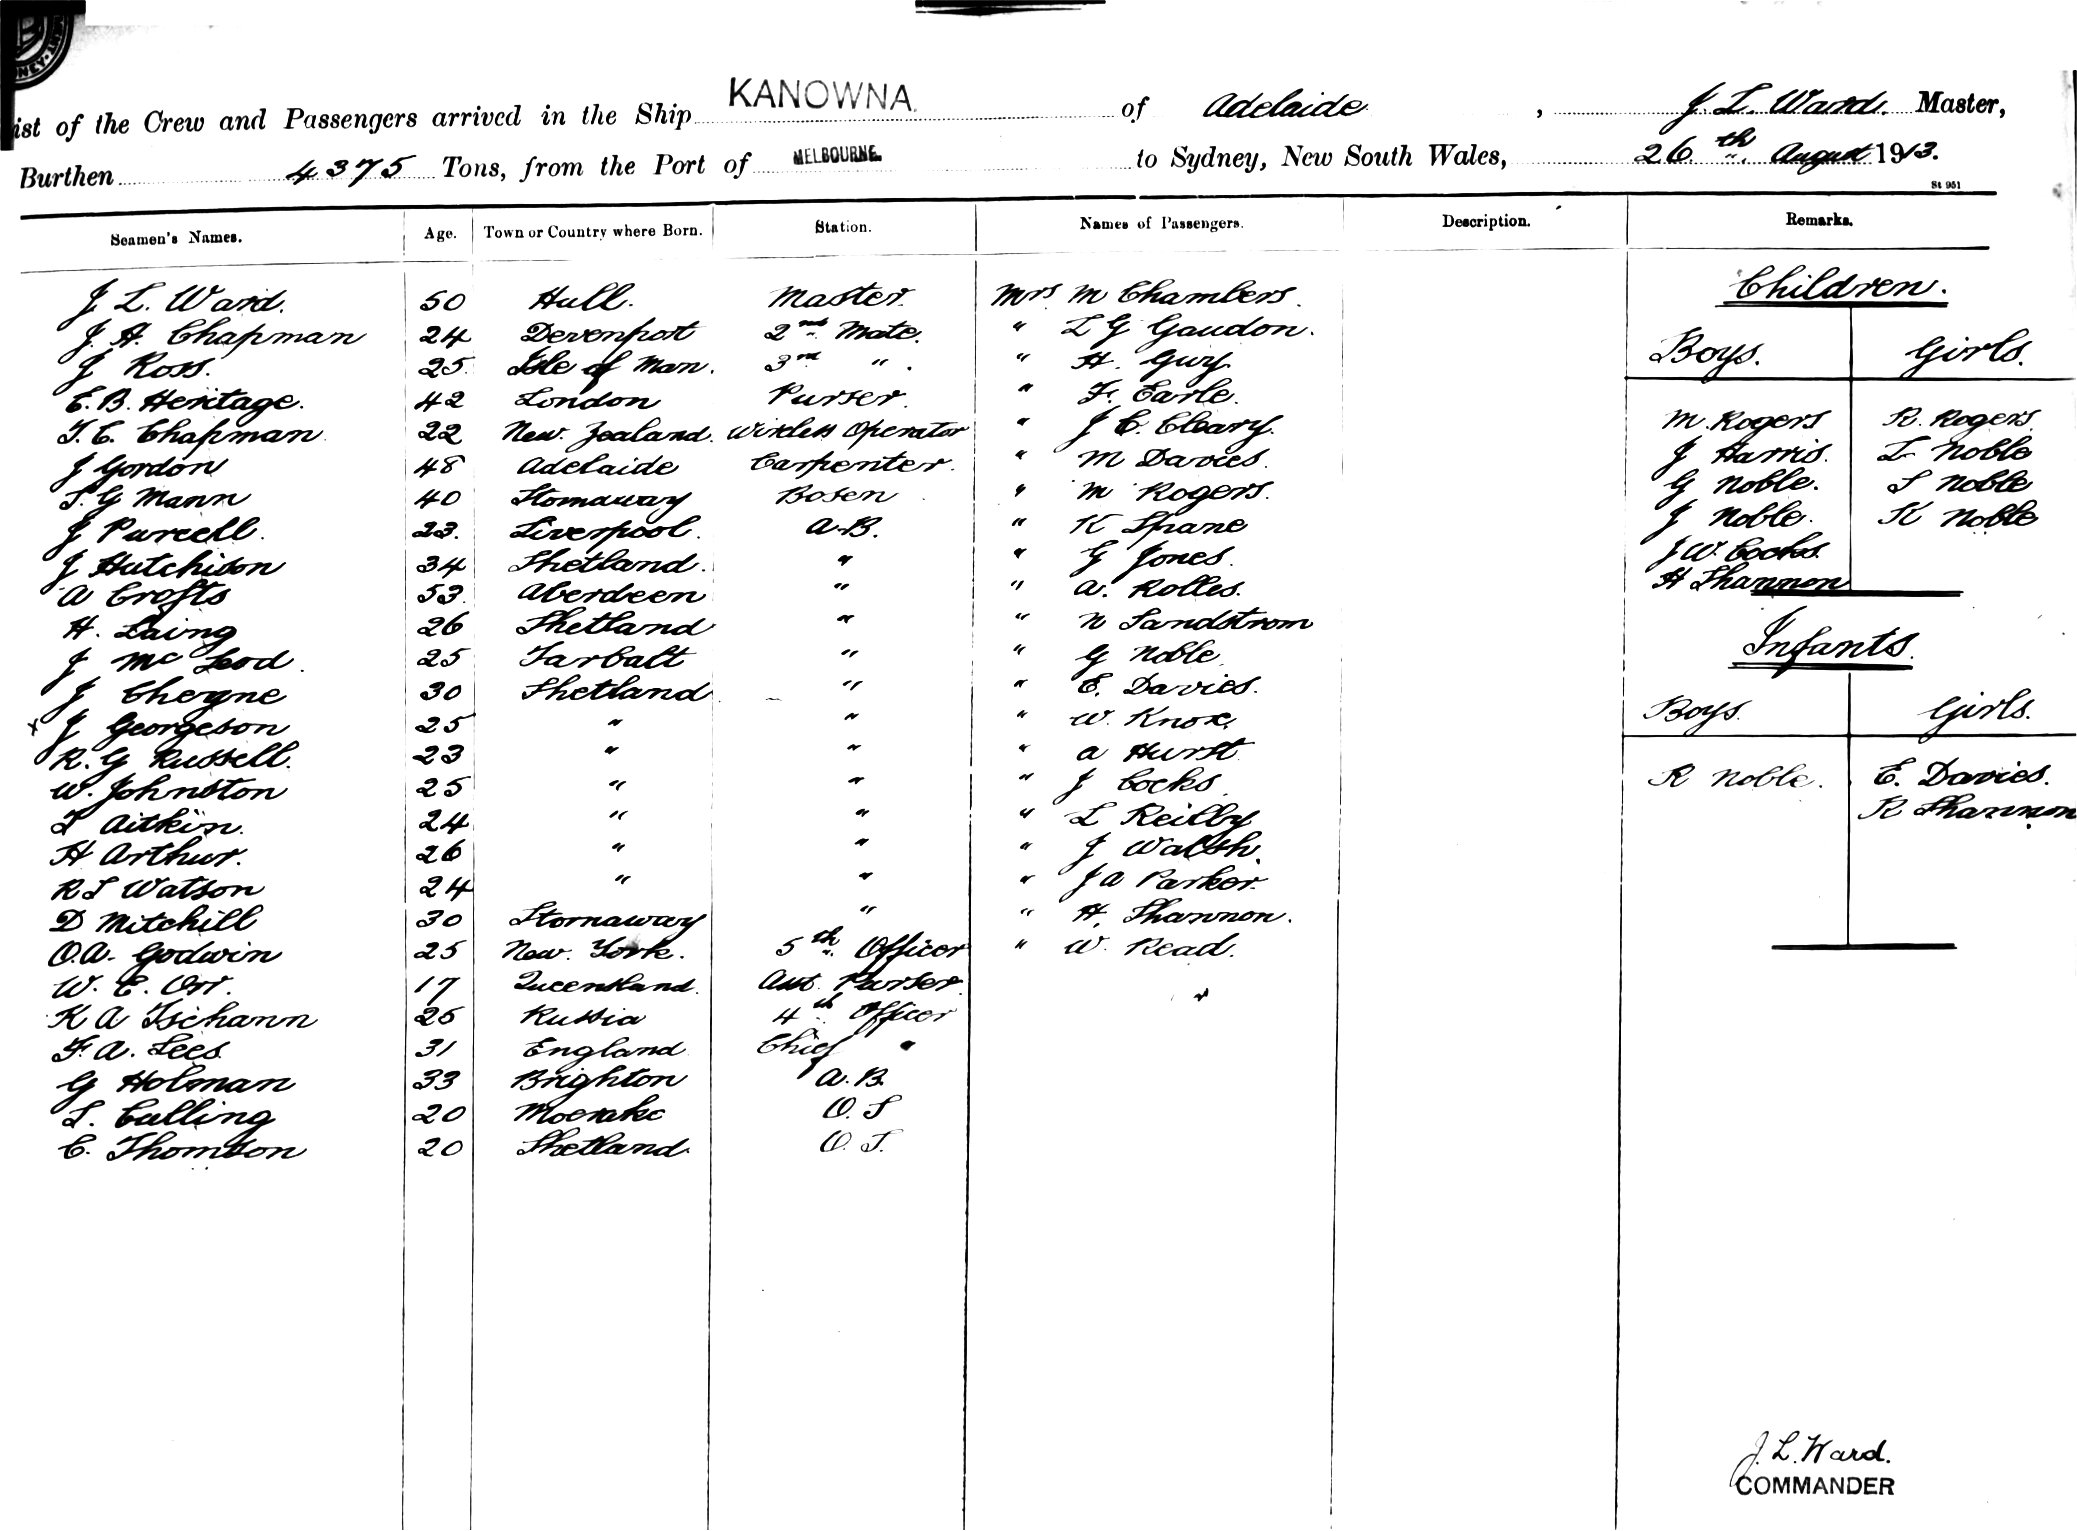 ist of the Crew and Passengers arrived in the Ship KANOWNA of Adelaide, J. L. Ward. Master,
Burthen 4375 Tons, from the Port of MELBOURNE to Sydney, New South Wales, 26th August 1913.
St 951
Seamen's Names. Age. Town or Country where Born. Station. Names of Passengers. Description. Remarks.
Children.
J. L. Ward. 50 Hull. Master. Mrs M Chambers.
J. A. Chapman 24 Devenport 2nd Mate. " L G Gaudon. Boys. Girls.
J Ross. 25 Isle of Man. 3rd " . " H. Guy.
E. B. Heritage. 42 London Purser. " F. Earle.
T. C. Chapman 22 New. Zealand. Wireless Operator " J C. Cleary. M. Rogers R. Rogers
J Gordon 48 Adelaide Carpenter. " M Davies. J Harris. L Noble
S. G Mann 40 Stornaway Bosen " M Rogers. G Noble. S Noble
J Purcell. 23. Liverpool. A.B. " K Spane J Noble. K Noble
J Hutchison 34 Shetland. " " G Jones. J W. Cocks.
A Crofts 53 Aberdeen " " A. Rolles. H Shannon
H. Laing 26 Shetland " " N Sandstrom
J McLeod. 25 Tarbatt " " G Noble. Infants.
J Cheyne 30 Shetland " " E. Davies.
x J Georgeson 25 " " " W. Knox. Boys. Girls.
R. G Russell. 23 " " " A Hurst
W. Johnston 25 " " " J Cocks. R Noble. E. Davies.
T Aitkin. 24 " " " L Reilly R Shannon
H Arthur. 26 " " " J Walsh.
R S Watson 24 " " " J A Parker.
D Mitchill 30 Stornaway " " H. Shannon.
O.A. Godwin 25 New. York. 5th Officer " W. Read.
W. E. Orr. 17 Queensland. Asst. Purser.
K A Tschann 25 Russia 4th Officer
F. A. Lees 31 England Chief "
G Holman 33 Brighton A.B.
L. Culling 20 O. S
C. Thomson 20 Shetland. O. S.
J. L. Ward.
COMMANDER